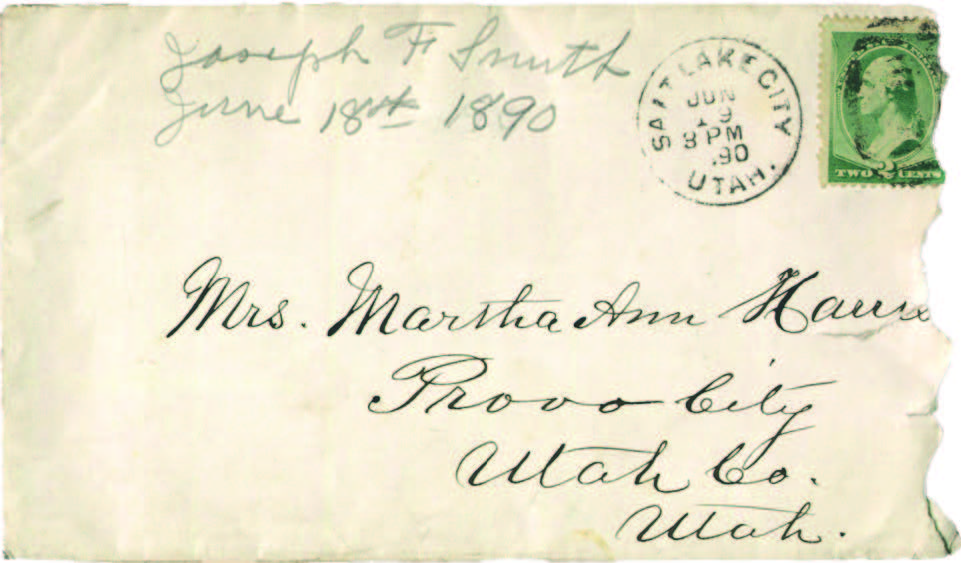 Joseph F Smith
June 18th 1890
SALT LAKE CITY
JUN
19
8 PM
.90
UTAH.
TWO 2 CENTS
Mrs. Martha Ann Harris
Provo City
Utah Co.
Utah.